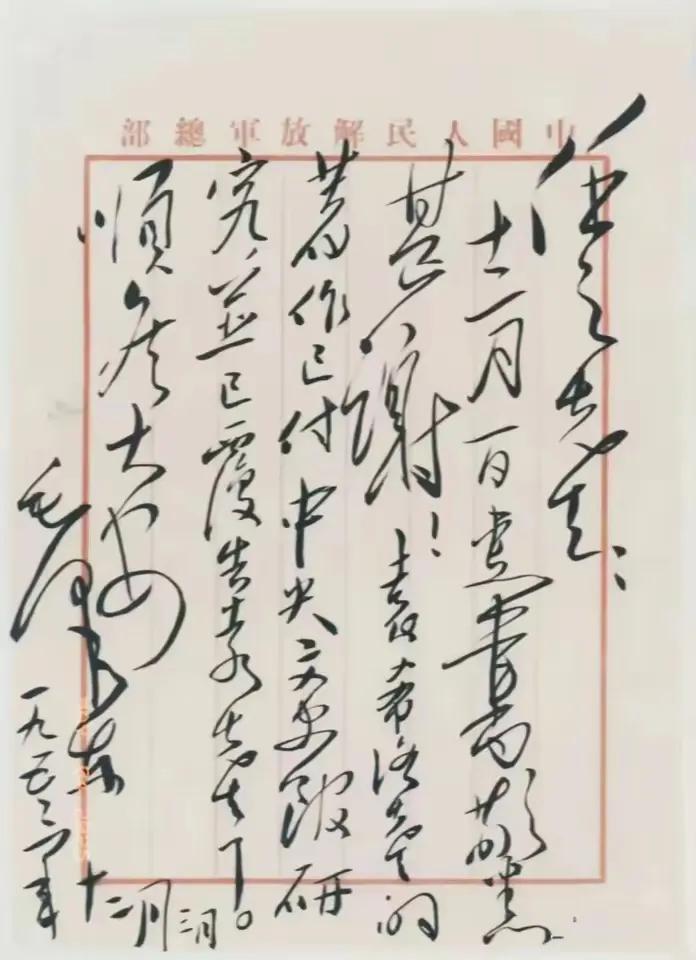 中國人民解放軍總部
任之先生：
十二月一日惠書敬悉，
甚謝！袁希洛先生的
著作已付中央文史館研
究，並已覆告袁先生了。
順大安
毛澤東
一九五二年
十二月三日